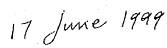 17 June 1999